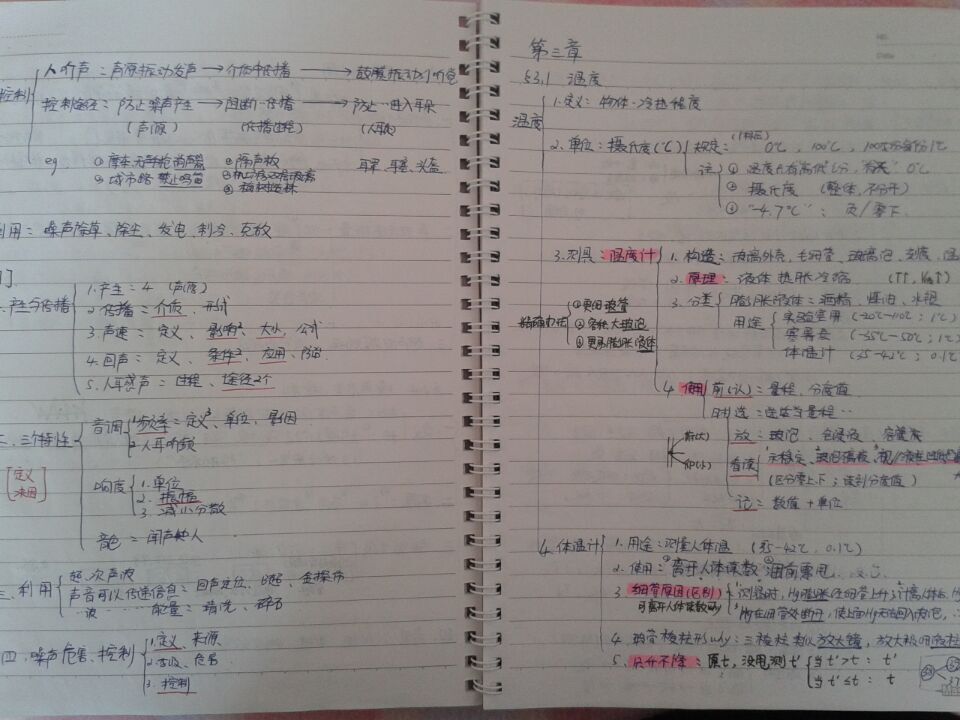 人听声：声源振动发声→介质中传播→鼓膜振动引听觉
控制
控制途径：防止噪声产生→阻断…传播→防止…进入耳朵
(声源) (传播过程) (人耳处)
eg ①摩托车等枪消声器 ④隔声板 耳罩、耳塞、头盔
②城市路禁止鸣笛
③植树造林
利用：噪声除草、除尘、发电、制冷、克敌
一、产生与传播
1.产生：4 (声源)
2.传播：介质、形式
3.声速：定义、影响²、大小、公式
4.回声：定义、条件²、应用、防治
5.人耳感声：过程、途径2个
二、三个特性
音调 1.频率：定义³、单位、景因
2.人耳听频
[定义 来因]
响度 1.单位
2.振幅
3.减小分散
音色：闻声知人
三、利用
超、次声波
声音可以传递信息：回声定位、B超、金探伤
能量：清洗、碎石
四、噪声危害、控制
1.定义、来源
2.等级、危害
3.控制
第三章
§3.1 温度
温度
1.定义：物体·冷热程度
2.单位：摄氏度(℃) 规定：0℃，100℃，100等份每份1℃
注 ①温度只有高低之分，"有无" 0℃
②摄氏度 (整体，不分开)
③"-4.7℃"：负/零下
3.测具：温度计
1.构造：玻璃外壳、毛细管、玻璃泡、刻度、温
2.原理：液体热胀冷缩 (t↑，V液↑)
3.分类
膨胀液体：酒精、煤油、水银
用途 实验室用 (-20℃~110℃；1℃)
寒暑表 (-35℃~50℃；1℃)
体温计 (35~42℃；0.1℃)
精确办法
①更细玻管
②容积大玻泡
③更易膨胀液体
4.使用 前(认)：量程、分度值
时 选：适当量程…
放：玻泡、全浸没、容器底
看读 示稳定、玻泡留液、视
俯(大)
仰(小)
(区分零上、下；读到分度值)
记：数值+单位
4.体温计
1.用途：测量人体温 (35~42℃，0.1℃)
2.使用：①离开人体读数②用前要甩
3.细管原因(区别)
可离开人体读数
4.玻管棱柱形why：三棱柱类似放大镜，放大极细
5.只升不降：原t，没甩测t'
当t'>t：t'
当t'≤t：t